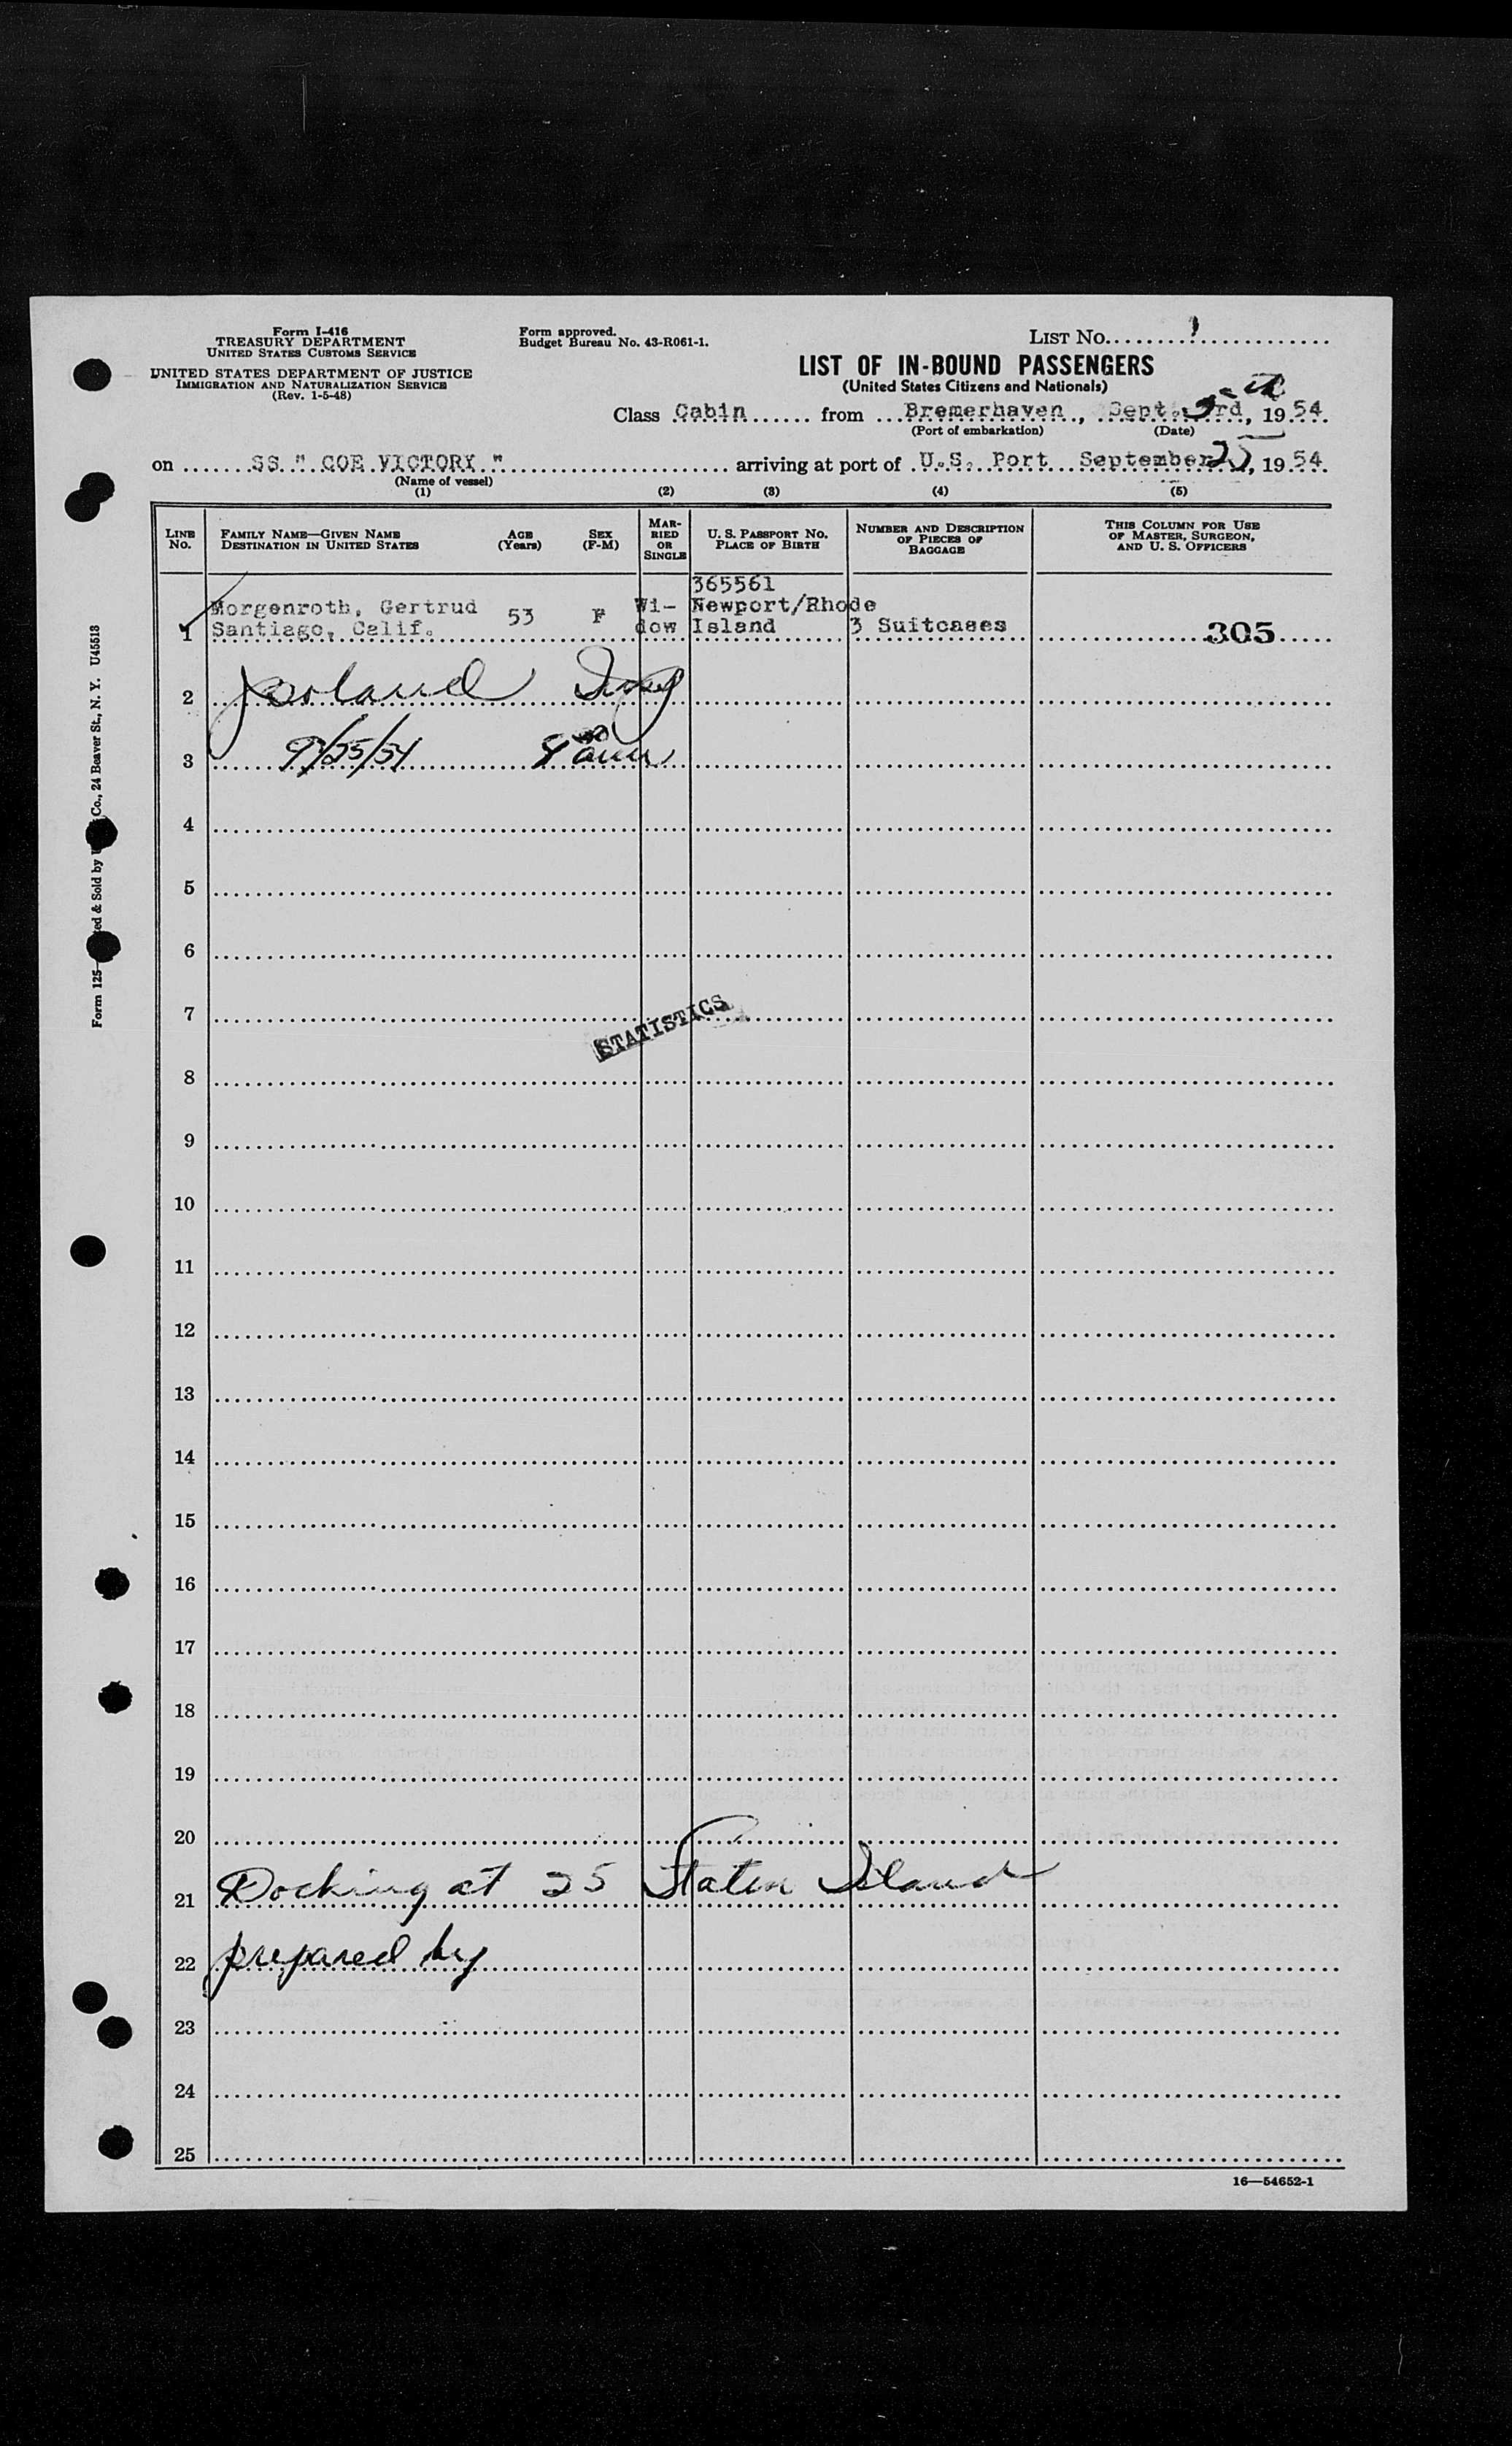 Form I-416
TREASURY DEPARTMENT
UNITED STATES CUSTOMS SERVICE
UNITED STATES DEPARTMENT OF JUSTICE
IMMIGRATION AND NATURALIZATION SERVICE
(Rev. 1-5-48)
Form approved.
Budget Bureau No. 43-R061-1.
LIST No. 1
LIST OF IN-BOUND PASSENGERS
(United States Citizens and Nationals)
Class Cabin from Bremerhaven, Sept. 5th, 1954
(Port of embarkation) (Date)
on SS " COE VICTORY " arriving at port of U.S. Port September 25, 1954
(Name of vessel)
(1) (2) (3) (4) (5)
LINE No.
FAMILY NAME—GIVEN NAME
DESTINATION IN UNITED STATES
AGE (Years)
SEX (F-M)
MARRIED OR SINGLE
U. S. PASSPORT NO.
PLACE OF BIRTH
NUMBER AND DESCRIPTION OF PIECES OF BAGGAGE
THIS COLUMN FOR USE OF MASTER, SURGEON, AND U. S. OFFICERS
365561
Morgenroth, Gertrud 53 F Wi- Newport/Rhode
1 Santiago, Calif. dow Island 3 Suitcases 305
2
3 9/25/54
4
5
6
7
STATISTICS
8
9
10
11
12
13
14
15
16
17
18
19
20
21 Docking at 25 Staten Island
22 prepared by
23
24
25
16—54652-1
Form 125— ted & Sold by Co., 24 Beaver St., N. Y. U45513